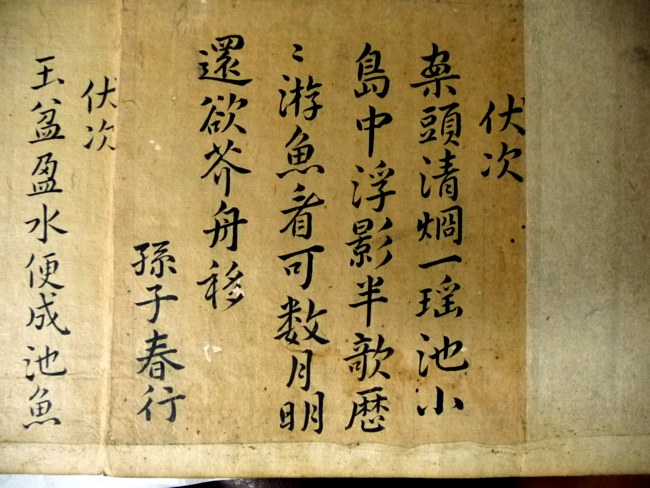 伏次
案頭清烱一瑶池小
島中浮影半欹歴
〻游魚看可数月明
還欲芥舟移
孫子春行
伏次
玉盆盈水便成池魚